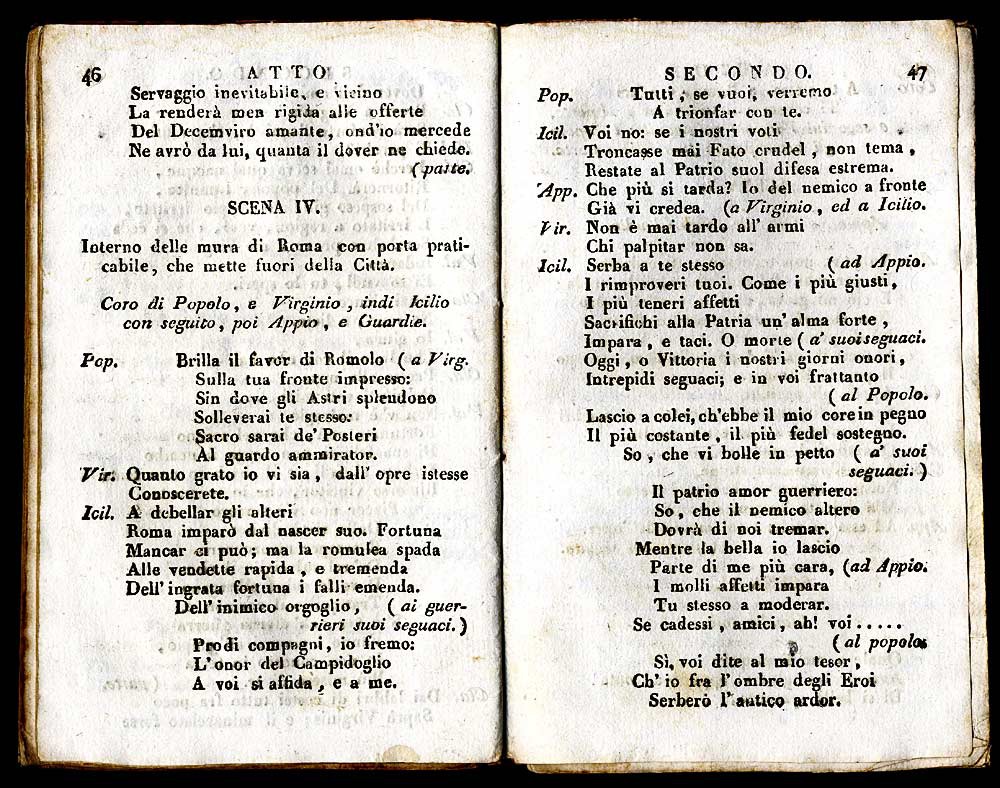 46 ATTO
Servaggio inevitabile, e vicino
La renderà men rigida alle offerte
Del Decemviro amante, ond'io mercede
Ne avrò da lui, quanta il dover ne chiede.
(parte.
SCENA IV.
Interno delle mura di Roma con porta prati-
cabile, che mette fuori della Città.
Coro di Popolo, e Virginio, indi Icilio
con seguito, poi Appio, e Guardie.
Pop. Brilla il favor di Romolo (a Virg.
Sulla tua fronte impresso:
Sin dove gli Astri splendono
Solleverai te stesso:
Sacro sarai de' Posteri
Al guardo ammirator.
Vir. Quanto grato io vi sia, dall' opre istesse
Conoscerete.
Icil. A debellar gli alteri
Roma imparò dal nascer suo. Fortuna
Mancar ci può; ma la romulea spada
Alle vendette rapida, e tremenda
Dell' ingrata fortuna i falli emenda.
Dell' inimico orgoglio, (ai guer-
rieri suoi seguaci.)
Prodi compagni, io fremo:
L'onor del Campidoglio
A voi si affida, e a me.
SECONDO. 47
Pop. Tutti, se vuoi, verremo
A trionfar con te.
Icil. Voi no: se i nostri voti
Troncasse mai Fato crudel, non tema,
Restate al Patrio suol difesa estrema.
App. Che più si tarda? Io del nemico a fronte
Già vi credea. (a Virginio, ed a Icilio.
Vir. Non è mai tardo all' armi
Chi palpitar non sa.
Icil. Serba a te stesso (ad Appio.
I rimproveri tuoi. Come i più giusti,
I più teneri affetti
Sacrifichi alla Patria un' alma forte,
Impara, e taci. O morte (a' suoi seguaci.
Oggi, o Vittoria i nostri giorni onori,
Intrepidi seguaci; e in voi frattanto
(al Popolo.
Lascio a colei, ch'ebbe il mio core in pegno
Il più costante, il più fedel sostegno.
So, che vi bolle in petto (a' suoi
seguaci.)
Il patrio amor guerriero:
So, che il nemico altero
Dovrà di noi tremar.
Mentre la bella io lascio
Parte di me più cara, (ad Appio.
I molli affetti impara
Tu stesso a moderar.
Se cadessi, amici, ah! voi.....
(al popolo.
Sì, voi dite al mio tesor,
Ch' io fra l'ombre degli Eroi
Serberò l'antico ardor.